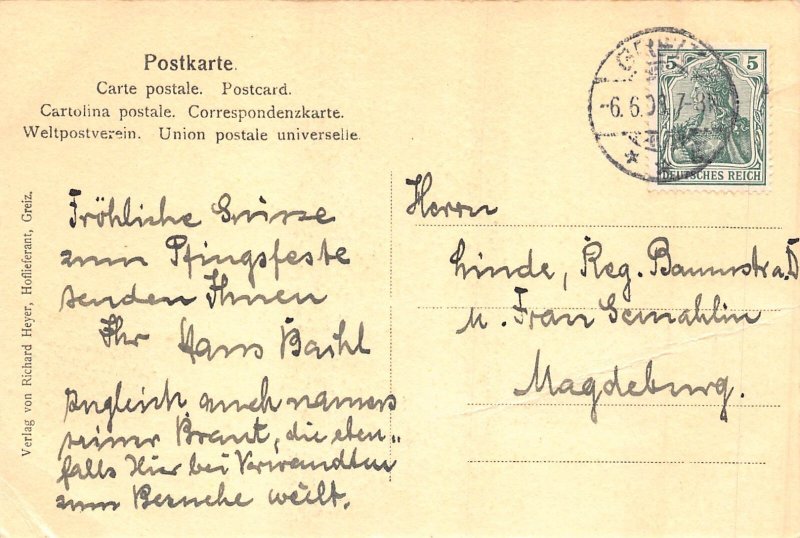 Postkarte.
Carte postale. Postcard.
Cartolina postale. Correspondenzkarte.
Weltpostverein. Union postale universelle.
GREIZ
-6.6.09. 7-8
5 5
DEUTSCHES REICH
Verlag von Richard Heyer, Hoflieferant, Greiz.
Fröhliche Grüsse
zum Pfingsfeste
senden Ihnen
Ihr Hans
zugleich auch namens
seiner Braut, die eben„
falls hier bei Verwandten
zum Besuche weilt.
Herrn
Linde, Reg. Baumstr a. D
u. Frau Gemahlin
Magdeburg.